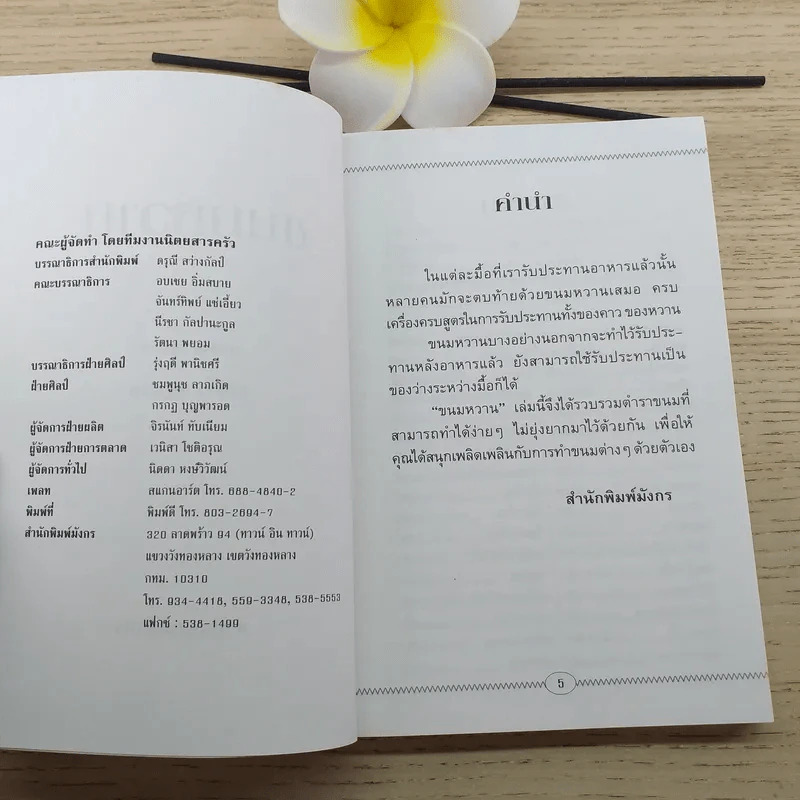 คณะผู้จัดทำ โดยทีมงานนิตยสารครัว
บรรณาธิการสำนักพิมพ์ ดรุณี สว่างกัลป์
คณะบรรณาธิการ อบเชย อิ่มสบาย
จันทร์ทิพย์ แซ่เฮี้ยว
นีรขา กัลปานะกูล
รัตนา พยอม
บรรณาธิการฝ่ายศิลป์ รุ่งฤดี พานิชศรี
ฝ่ายศิลป์ ชมพูนุช ลาภเกิด
กรกฏ บุญพารอด
ผู้จัดการฝ่ายผลิต จิรนันท์ ทับเนียม
ผู้จัดการฝ่ายการตลาด เวนิสา โชติอรุณ
ผู้จัดการทั่วไป นิดดา หงษ์วิวัฒน์
เพลท สแกนอาร์ต โทร. 888-4840-2
พิมพ์ที่ พิมพ์ดี โทร. 803-2694-7
สำนักพิมพ์มังกร 320 ลาดพร้าว 94 (ทาวน์ อิน ทาวน์)
แขวงวังทองหลาง เขตวังทองหลาง
กทม. 10310
โทร. 934-4418, 559-3348, 538-5553
แฟกซ์ : 538-1499
คำนำ
ในแต่ละมื้อที่เรารับประทานอาหารแล้วนั้น
หลายคนมักจะตบท้ายด้วยขนมหวานเสมอ ครบ
เครื่องครบสูตรในการรับประทานทั้งของคาว ของหวาน
ขนมหวานบางอย่างนอกจากจะทำไว้รับประ-
ทานหลังอาหารแล้ว ยังสามารถใช้รับประทานเป็น
ของว่างระหว่างมื้อก็ได้
“ขนมหวาน” เล่มนี้จึงได้รวบรวมตำราขนมที่
สามารถทำได้ง่ายๆ ไม่ยุ่งยากมาไว้ด้วยกัน เพื่อให้
คุณได้สนุกเพลิดเพลินกับการทำขนมต่างๆ ด้วยตัวเอง
สำนักพิมพ์มังกร
5